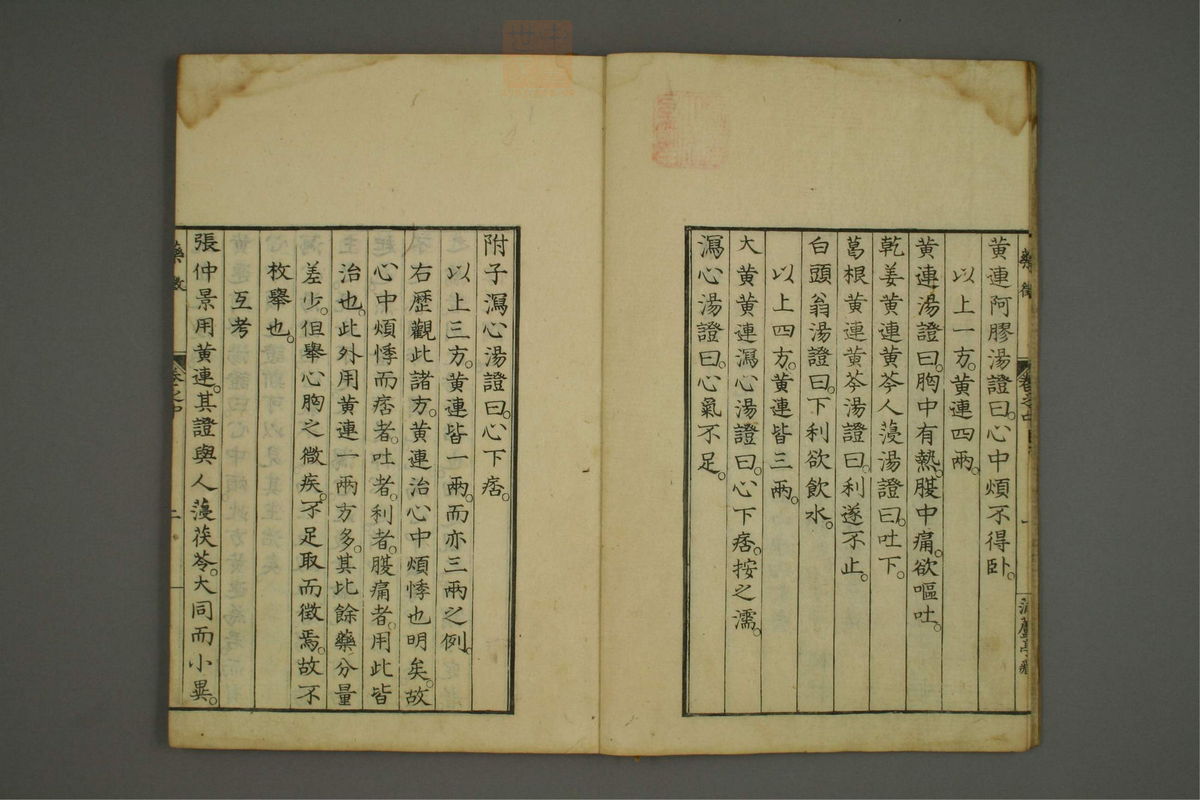 黄連阿膠湯證曰。心中煩不得卧。
以上一方。黄連四兩。
黄連湯證曰。胸中有熱。腹中痛。欲嘔吐。
乾姜黄連黄芩人薓湯證曰。吐下。
葛根黄連黄芩湯證曰。利遂不止。
白頭翁湯證曰。下利欲飲水。
以上四方。黄連皆三兩。
大黄黄連瀉心湯證曰。心下痞。按之濡。
瀉心湯證曰。心氣不足。
附子瀉心湯證曰。心下痞。
以上三方。黄連皆一兩。而亦三兩之例。
右歷觀此諸方。黄連治心中煩悸也明矣。故
心中煩悸而痞者。吐者。利者。腹痛者。用此皆
治也。此外用黄連一兩方多。其比餘藥分量
差少。但舉心胸之微疾。不足取而徵焉。故不
枚舉也。
互考
張仲景用黄連。其證與人薓茯苓。大同而小異。
藥徵
卷之中
二